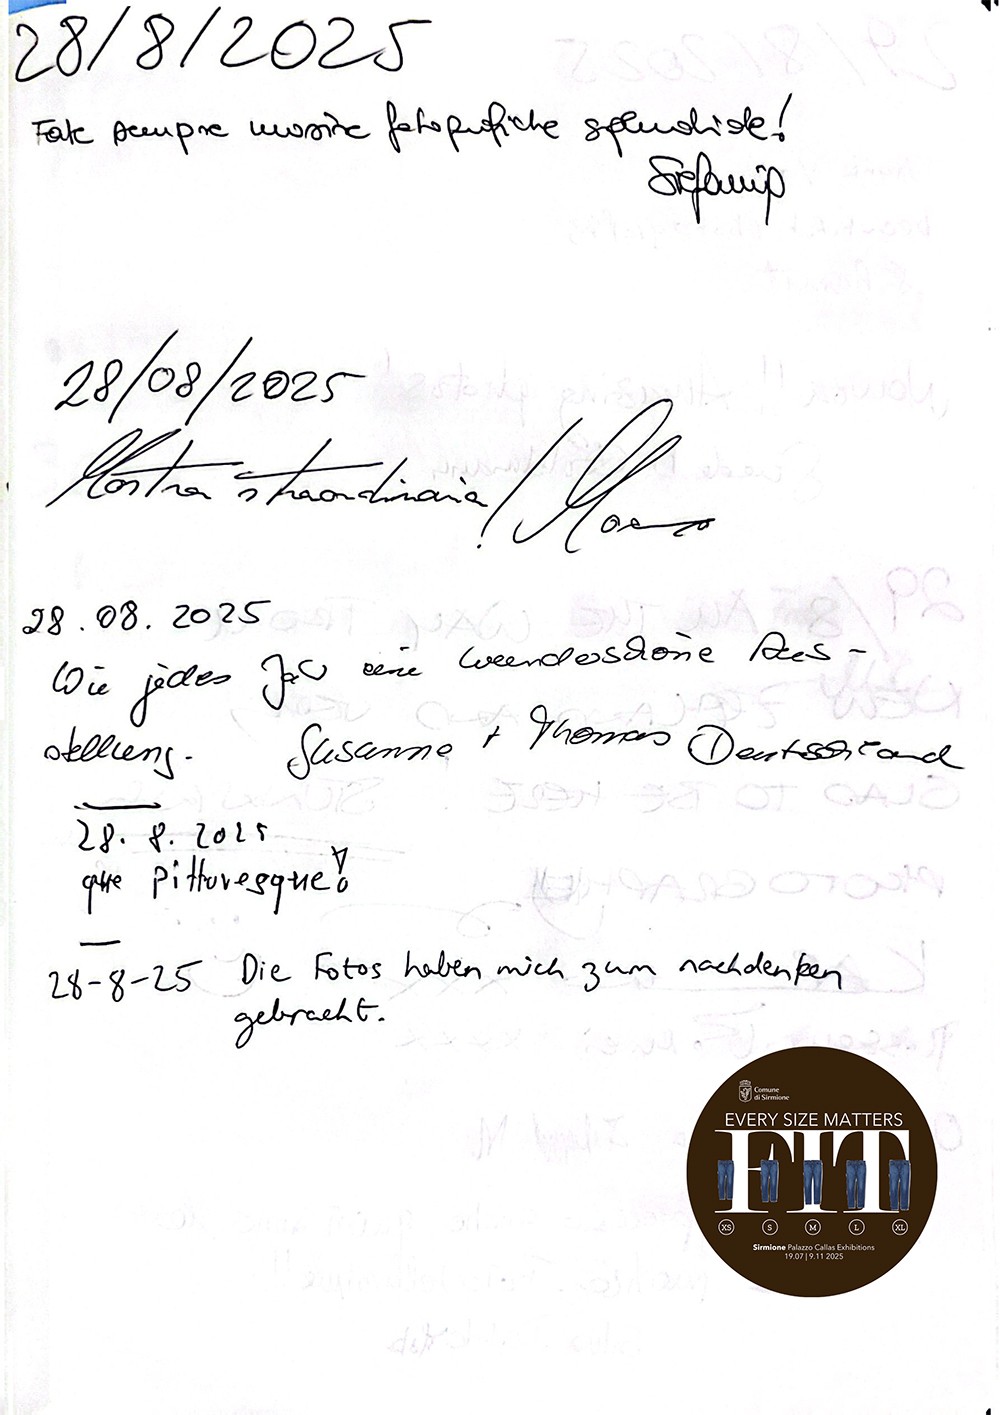 28/8/2025
Fate sempre mostre fotografiche splendide!
Stefania
28/08/2025
Mostra straordinaria!
28.08.2025
Wie jedes Jahr eine wunderschöne Aus-
stellung. Susanne + Thomas Deutschland
28.8.2025
que pittoresque!
28-8-25 Die Fotos haben mich zum nachdenken
gebracht.
Comune
di Sirmione
EVERY SIZE MATTERS
FIT
XS S M L XL
Sirmione Palazzo Callas Exhibitions
19.07 | 9.11 2025